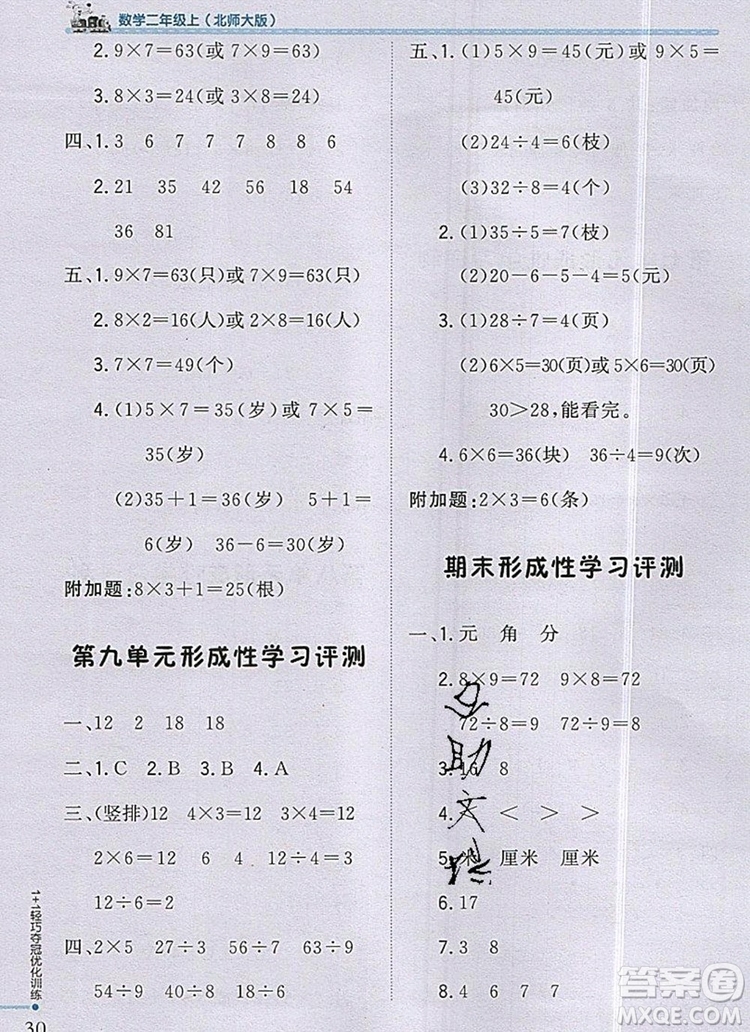 数学二年级上（北师大版）
2.9×7=63(或 7×9=63)
3.8×3=24(或 3×8=24)
四、1.3 6 7 7 7 8 8 6
2.21 35 54 27 56 18 54
36 81
五、1.9×7=63(只)或 7×9=63(只)
2.8×2=16(人)或 2×8=16(人)
3.7×7=49(个)
4.(1)5×7=35(岁)或 7×5=
35(岁)
(2)35+1=36(岁) 5+1=
6(岁) 36-6=30(岁)
附加题:8×3+1=25(根)
第九单元形成性学习评测
一、12 2 18 18
二、1.C 2.B 3.B 4.A
三、(竖排) 12 4×3=12 3×4=12
2×6=12 6×2=12
12÷6=2
四、2÷2 6÷6 27÷3 81÷9
54÷9 54÷6 30÷5 48÷6
五、1.(1)5×9=45(元)或 9×5=
45(元)
(2)24÷4=6(枝)
(3)32÷8=4(个)
2.(1)35÷5=7(枝)
(2)20-6-5-4=5(元)
3.(1)28÷7=4(页)
(2)6×5=30(页)或 5×6=30(页)
30>28,能看完。
4.6×6=36(块) 36÷4=9(次)
附加题:2×3=6(条)
期末形成性学习评测
一、1.元 角 分
2.8×9=72 9×8=72
72÷8=9 72÷9=8
3.16 8
4. < > >
5.米 厘米 厘米
6.17
7.3 8
8.9
1+1轻巧夺冠优化训练
30
答案圈
MXQE.COM